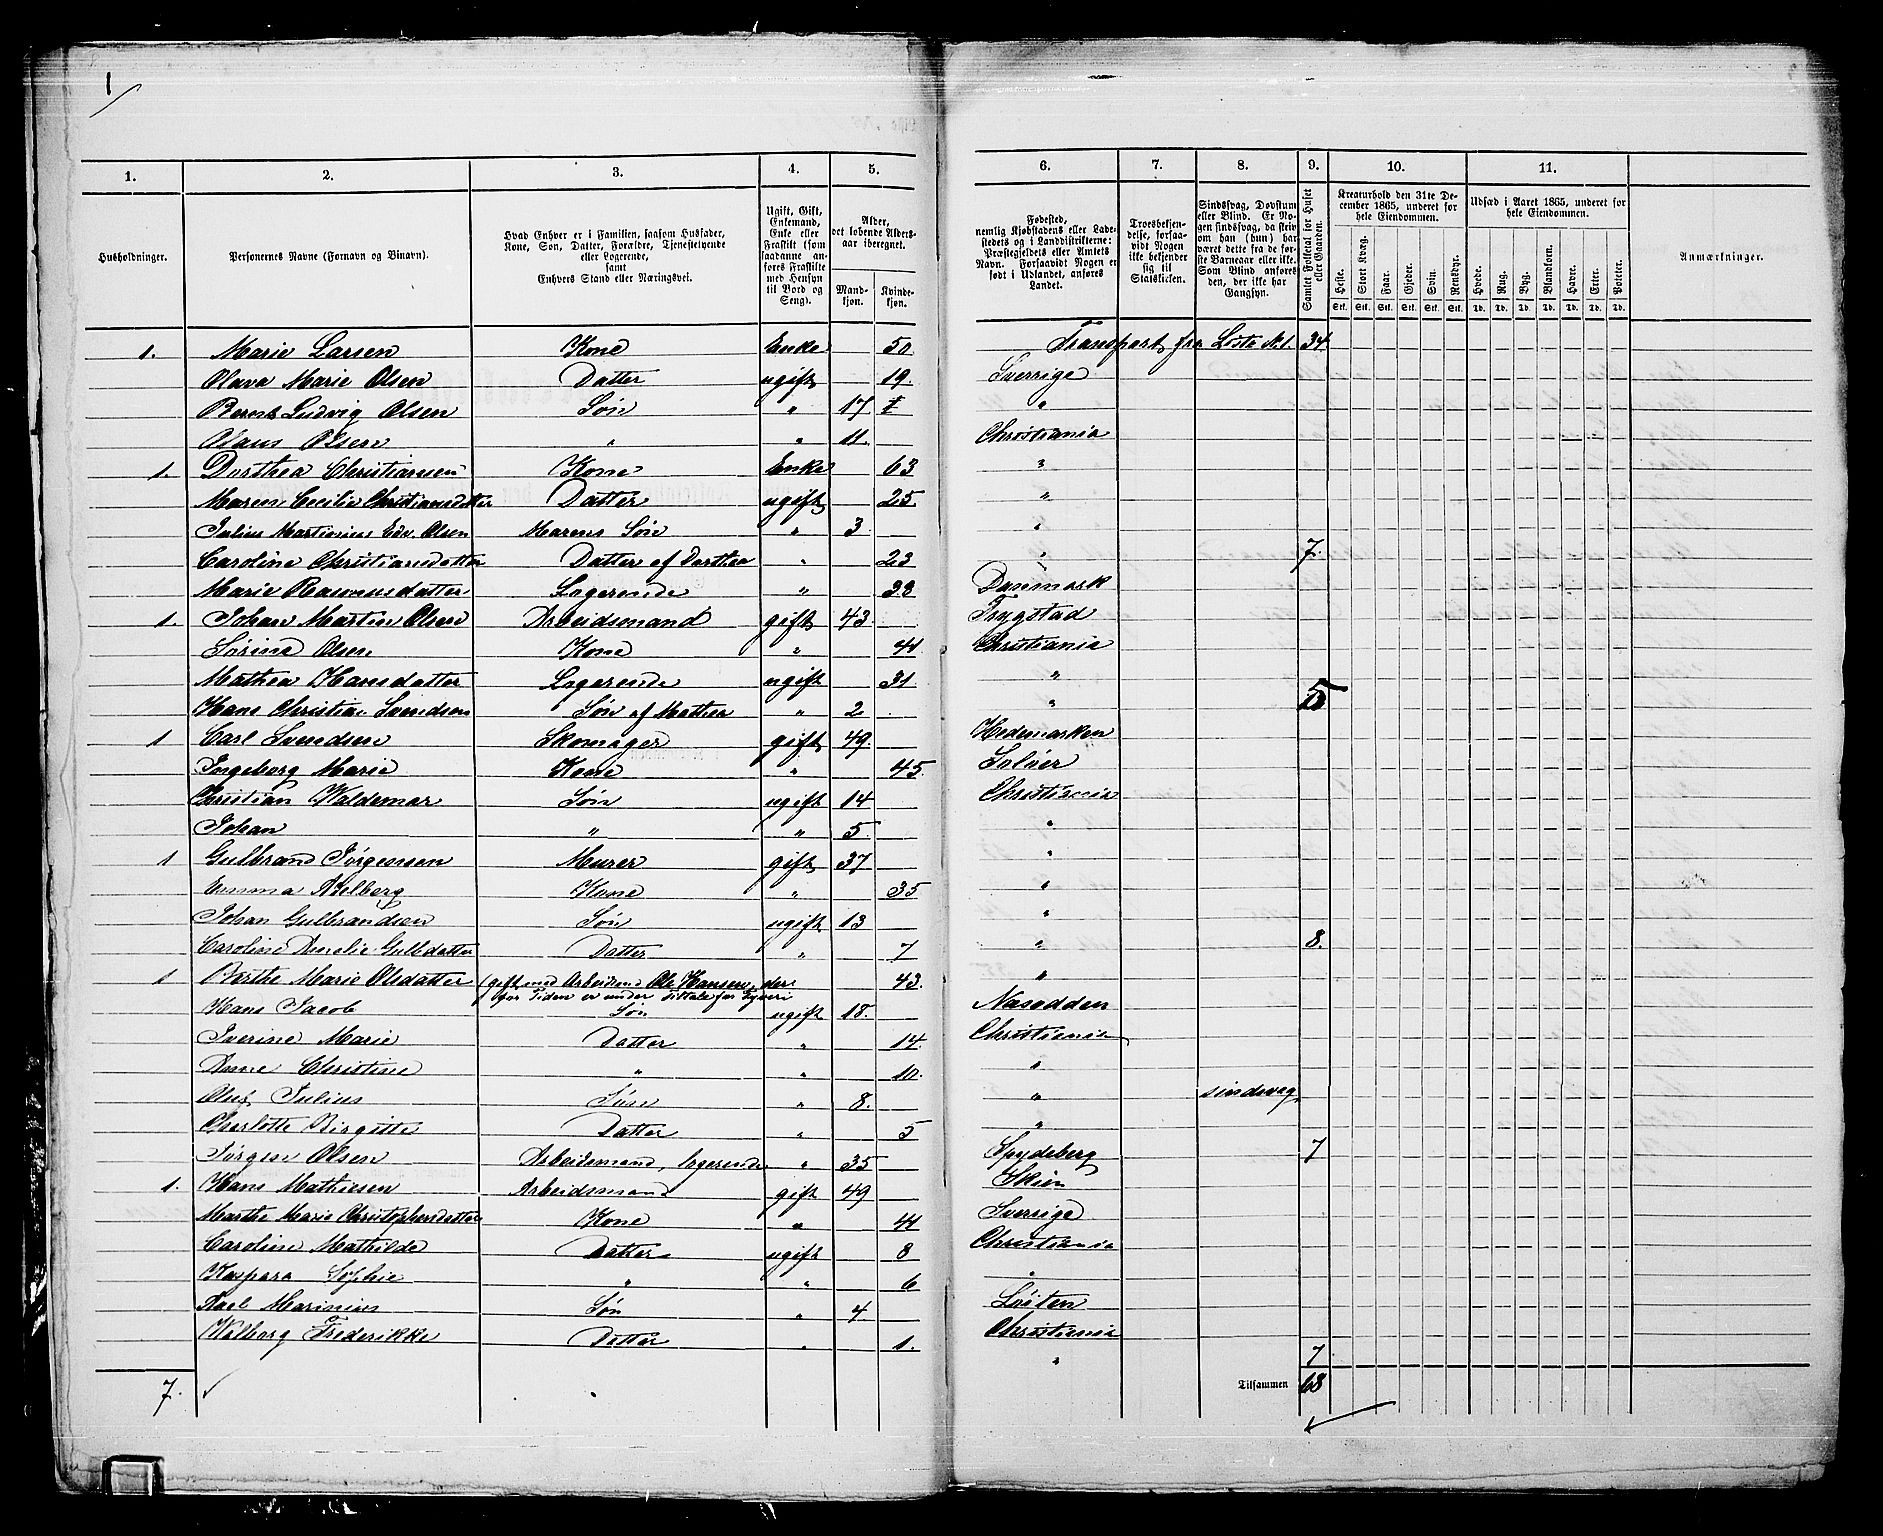 1
1. 2. 3. 4. 5.
Husholdninger.
Personernes Navne (Fornavn og Binavn).
Hvad Enhver er i Familien, saasom Husfader, Kone, Søn, Datter, Forældre, Tjenestetyende eller Logerende, samt Enhvers Stand eller Næringsvei.
Ugift, Gift, Enkemand, Enke eller Fraskilt (som saadanne anføres Fraskilte med Hensyn til Bord og Seng).
Alder, det løbende Aldersaar iberegnet.
Mandkjøn. Kvindekjøn.
1. Marie Larsen Kone Enke 50
Olava Marie Olsen Datter ugift 19.
Bernt Ludvig Olsen Søn " 17
Olaus Olsen " " 11.
1. Dorthea Christiansen Kone Enke 63
Maren Cecilie Christiansdatter Datter ugift 25
Julius Martinius Edv. Olsen Marens Søn " 3
Caroline Christiansdatter Datter af Dorthea " 23
Marie Rasmusdatter Logerende "
1. Johan Martin Olsen Arbeidsmand gift 43.
Sørine Olsen Kone " 41
Mathea Hansdatter Logerende ugift 31
Hans Christian Svendsen Søn af Mathea " 2
1 Carl Svendsen Skomager gift 49.
Ingeborg Marie Kone " 45.
Christian Waldemar Søn ugift 14
Johan " " 5.
1 Gulbrand Jørgensen Murer gift 37
Emma Kone " 35
Johan Gulbrandsen Søn ugift 13
Caroline Amalie Gulbdatter Datter " 7
1 Berthe Marie Olsdatter (gift med Arbeidsmd Ole Hansen, der 43.
for Tiden er under Tiltale for Tyveri
Hans Jacob Søn ugift 18.
Iverine Marie Datter " 14.
Anne Christine " " 10.
Julius Søn " 8.
Charlotte Birgitte Datter " 5
Jørgen Olsen Arbeidsmand, logerende " 35
1. Hans Mathiesen Arbeidsmand gift 49
Marthe Marie Christophersdatter Kone " 41
Caroline Mathilde Datter ugift 8
Kaspara Sophie " " 6
Axel Marinius Søn " 4
Walborg Frederikke Datter " 1.
7.
6. 7. 8. 9. 10. 11.
Fødested, nemlig Kjøbstadens eller Ladestedets og i Landdistrikterne: Præstegjeldets eller Amtets Navn. Forsaavidt Nogen er født i Udlandet, anføres Landet.
Troesbekjendelse, forsaavidt Nogen ikke bekjender sig til Statskirken.
Sindssvag, Døvstum eller Blind. Er Nogen sindssvag, da striv om han (hun) har været dette fra de første Barneaar eller ikke. Som Blind anføres den, der ikke har Gangsyn.
Samlet Folketal for Huset eller Gaarden.
Kreaturhold den 31te December 1865, underet for hele Eiendommen.
Heste. Stort Kvæg. Faar. Gjeder. Svin. Rensdyr.
Stk. Stk. Stk. Stk. Stk. Stk.
Udsæd i Aaret 1865, underet for hele Eiendommen.
Hvede. Rug. Byg. Blandkorn. Havre. Erter. Poteter.
Td. Td. Td. Td. Td. Td. Td.
Anmærkninger.
Transport fra Liste N. 1. 34
Sverrige
"
Christiania
"
"
"
" 7.
Danmark
Trygstad
Christiania
"
" 5
Hedemarken
Soløer
Christiania
"
"
"
"
" 8.
"
Nasodden
Christiania
"
" sindsvag
"
Spydeberg 7
Skien
Sverrige
Christiania
"
Løiten
Christiania
" 7
Tilsammen 68